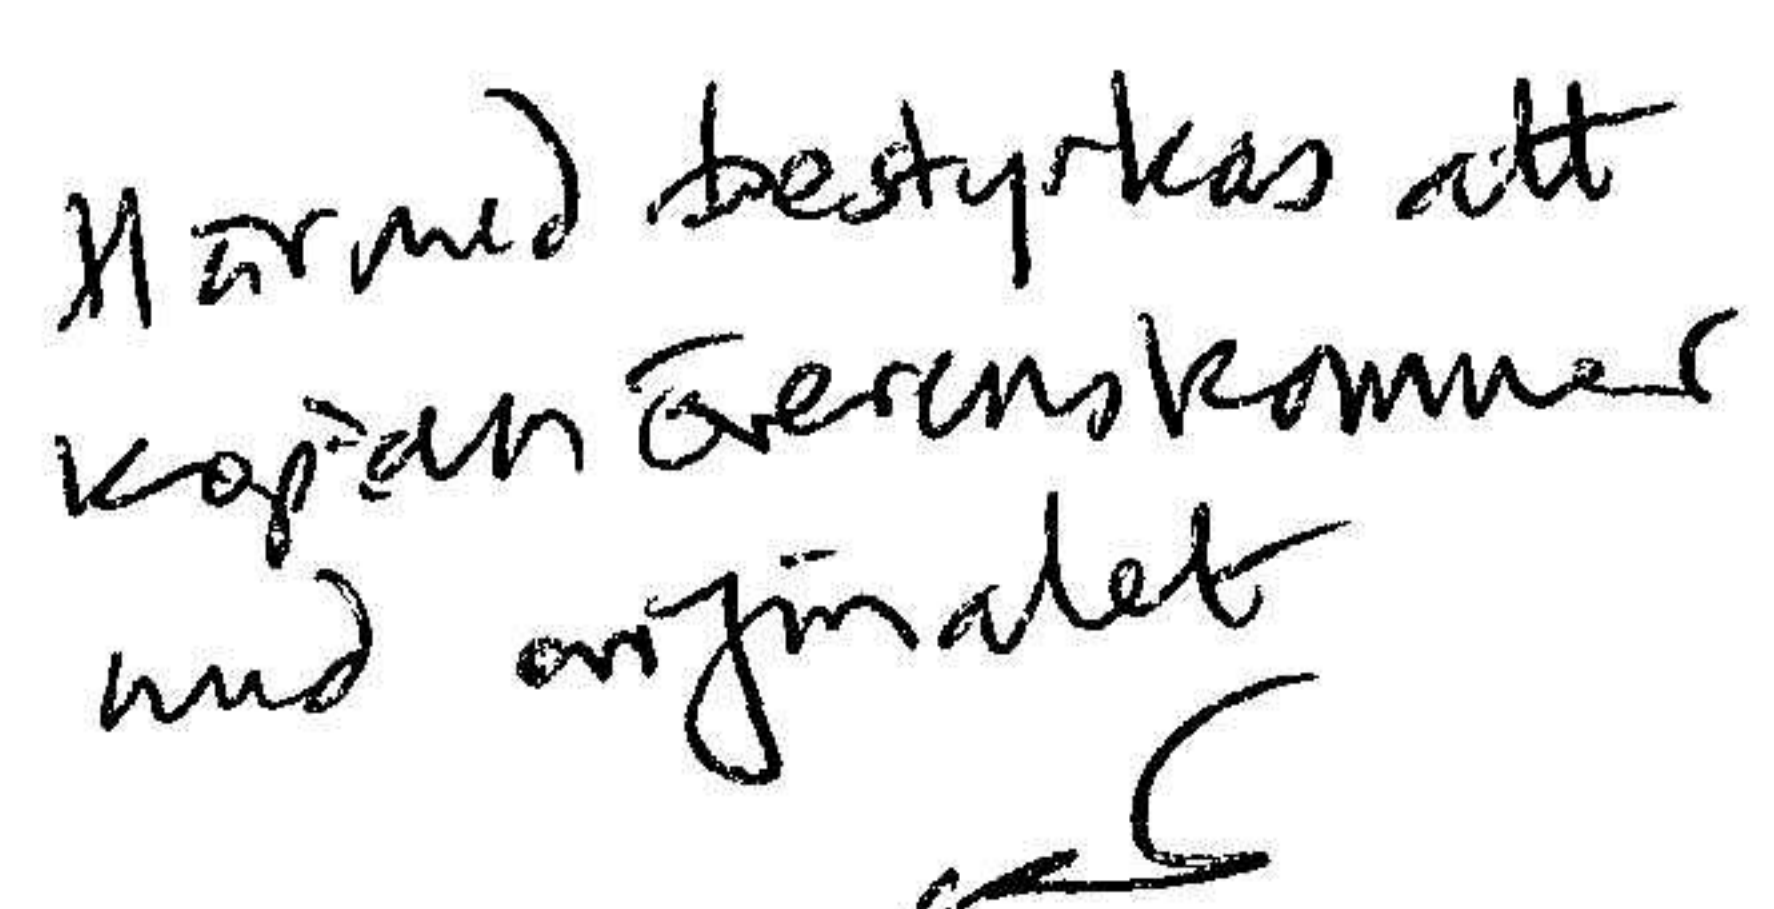 Härmed bestyrkas att
kopian överenskommer
med orginalet